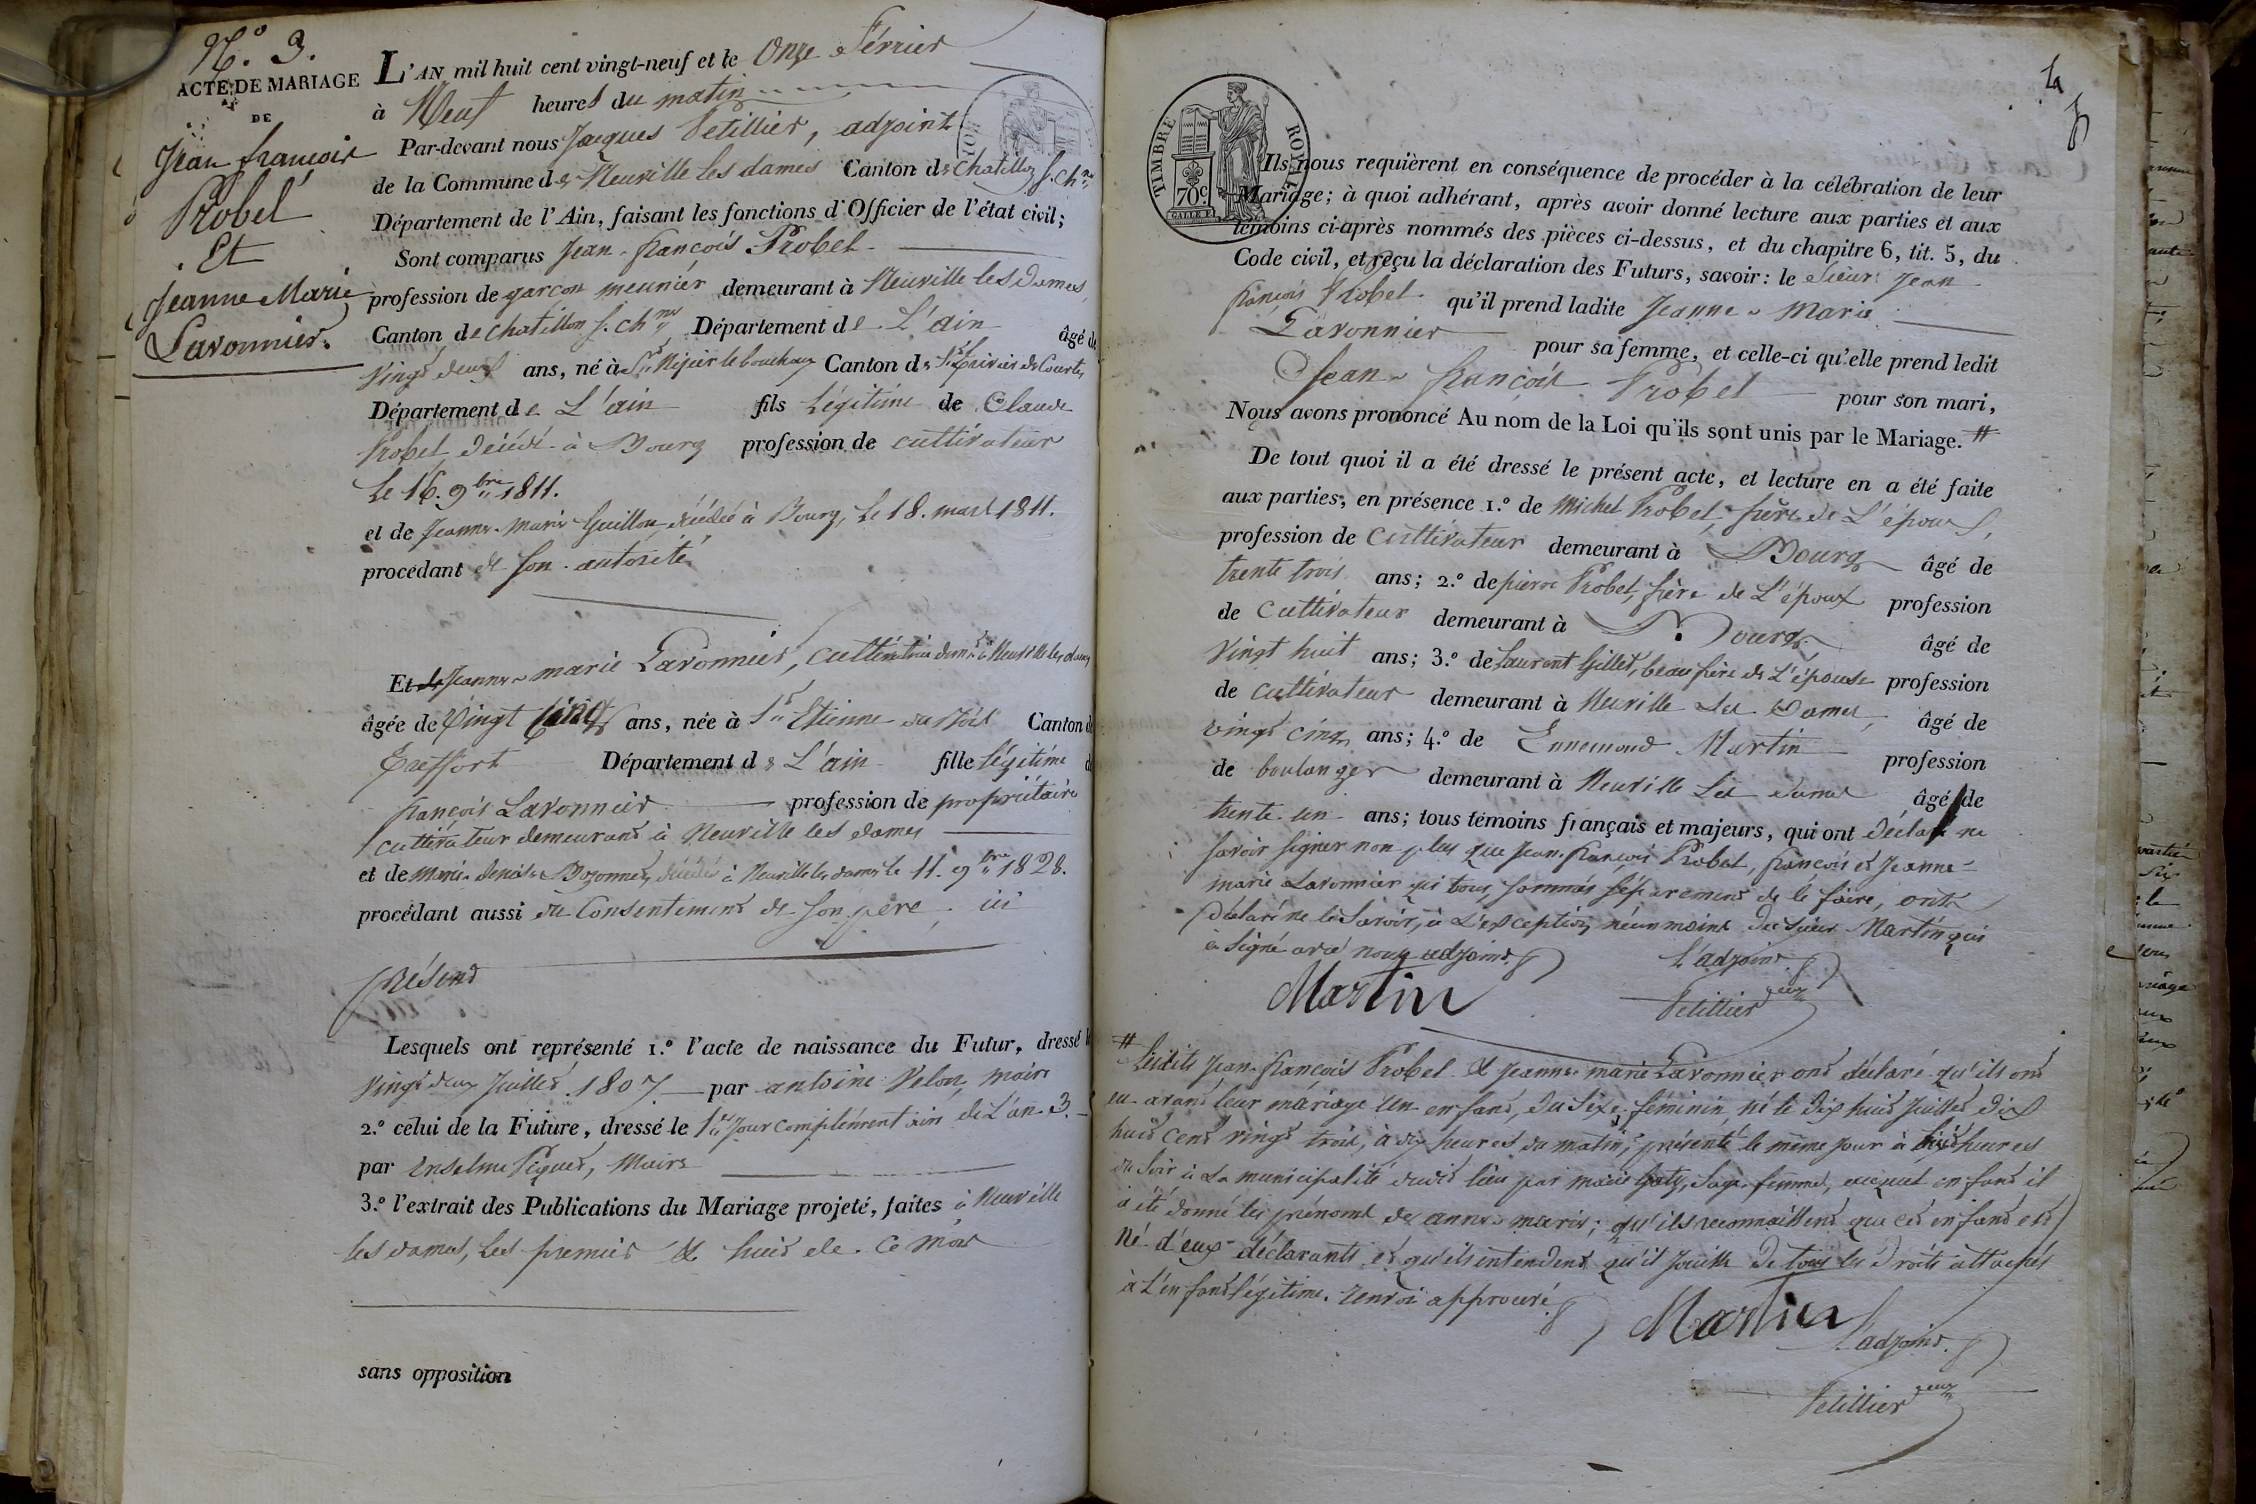 N.° 3.
ACTE DE MARIAGE
DE
Jean françois
Probel
Et
Jeanne Marie
Lavonnier.
L'AN mil huit cent vingt-neuf et le Onze Février
à Neuf heures du matin
Par-devant nous Jacques Petillier, adjoint
de la Commune de Neuville les dames Canton de Chatillon s. Ch.ne
Département de l'Ain, faisant les fonctions d'Officier de l'état civil;
Sont comparus Jean-françois Probel
profession de garçon meunier demeurant à Neuville les Dames
Canton de Chatillon s. Ch.ne Département de L'ain âgé de
vingt deux ans, né à St Nizier le bouchoux Canton de St Trivier de Courtes
Département de L'ain fils légitime de Claude
Probel, décédé à Bourg profession de cultivateur
le 16. 9bre 1811.
et de Jeanne-Marie Guillon, décédée à Bourg, le 18. mars 1811.
procédant de son autorité
Et de Jeanne marie Lavonnier, cultivatrice dem.t à Neuville les dames
âgée de Vingt Cinq ans, née à St Etienne du Bois Canton de
Treffort Département de L'ain fille légitime de
françois Lavonnier profession de propriétaire
cultivateur demeurant à Neuville les dames
et de Marie-denise Bozonnet, décédée à Neuville les dames le 11. 9bre 1828.
procédant aussi du Consentement de son père, ici
Présent
Lesquels ont représenté 1.° l'acte de naissance du Futur, dressé le
vingt deux Juillet 1807 par antoine Velon, maire
2.° celui de la Future, dressé le 1er Jour complémentaire de L'an 3.
par Enselme Piquet, Maire
3.° l'extrait des Publications du Mariage projeté, faites à Neuville
les dames, les premier & huit de ce mois
sans opposition
TIMBRE ROYAL
70c.
Ils nous requièrent en conséquence de procéder à la célébration de leur
Mariage; à quoi adhérant, après avoir donné lecture aux parties et aux
témoins ci-après nommés des pièces ci-dessus, et du chapitre 6, tit. 5, du
Code civil, et reçu la déclaration des Futurs, savoir: le Sieur Jean
françois Probel qu'il prend ladite Jeanne-Marie
Lavonnier pour sa femme, et celle-ci qu'elle prend ledit
Jean-françois Probel pour son mari,
Nous avons prononcé Au nom de la Loi qu'ils sont unis par le Mariage. #
De tout quoi il a été dressé le présent acte, et lecture en a été faite
aux parties, en présence 1.° de Michel Probel, frère de L'époux,
profession de Cultivateur demeurant à Bourg âgé de
trente trois ans; 2.° de pierre Probel, frère de L'époux profession
de Cultivateur demeurant à Bourg âgé de
vingt huit ans; 3.° de Laurent Gillet, beau frère de L'épouse profession
de cultivateur demeurant à Neuville Les Dames, âgé de
vingt cinq ans; 4.° de Ennemond Martin profession
de boulanger demeurant à Neuville Les dames âgé de
trente-un ans; tous témoins français et majeurs, qui ont déclaré ne
savoir signer non plus que Jean-françois Probel, françois et Jeanne-
marie Lavonnier qui tous, sommés séparement de le faire, ont
Déclaré ne le Savoir, à L'exception néanmoins du sieur Martin qui
a Signé avec nous adjoint.
L'adjoint
Martin
Petillier
# Lesdits Jean-françois Probel & Jeanne-marie Lavonnier ont déclaré qu'ils ont
eu avant leur mariage un enfant, du sixe féminin né le Dix huit Juillet dix
huit cent vingt trois, à dix heures du matin, présenté le même jour à huit heures
du Soir à La municipalité dudit lieu par marie Gaty, Sage-femme, auquel enfant il
a été donné les prénoms de anne-marie; qu'ils reconnaissent que cet enfant est
Né d'eux déclarants et qu'ils entendent qu'il Jouisse De tous les Droits attachés
à L'enfant légitime. renvoi approuvé.
Martin
L'adjoint
Petillier